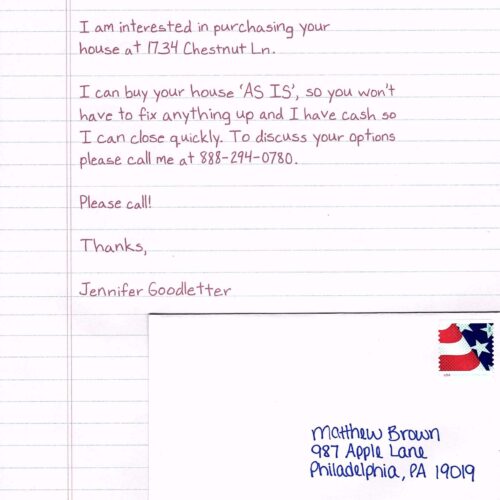 I am interested in purchasing your
house at 1734 Chestnut Ln.
I can buy your house 'AS IS', so you won't
have to fix anything up and I have cash so
I can close quickly. To discuss your options
please call me at 888-294-0780.
Please call!
Thanks,
Jennifer Goodletter
Matthew Brown
987 Apple Lane
Philadelphia, PA 19019